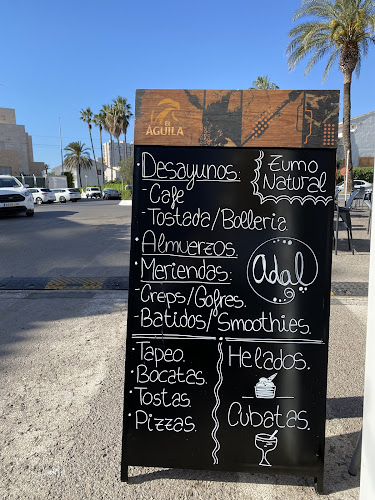 El
ÁGUILA
Desayunos:
-Cafe
-Tostada/Bolleria.
Zumo
Natural
·Almuerzos.
·Meriendas:
-Creps/Gofres.
-Batidos/Smoothies.
adal
·Tapeo.
·Bocatas.
·Tostas.
·Pizzas.
Helados.
Cubatas.